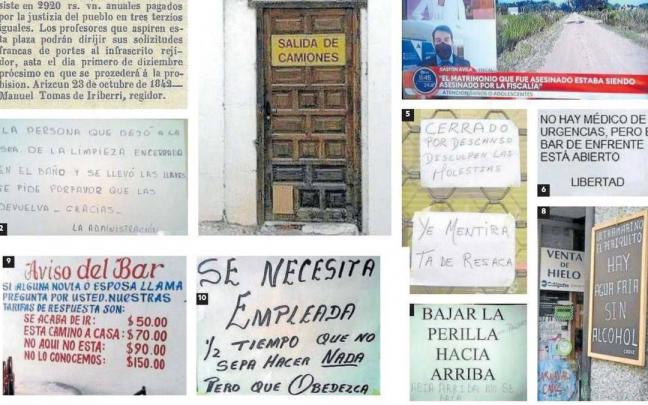 siste en 2920 rs. vn. anuales pagados
por la justicia del pueblo en tres terzios
iguales. Los profesores que aspiren es-
ta plaza podrán dirijir sus solicitudes
francas de portes al infrascrito reji-
dor, asta el dia primero de diziembre
prócsimo en que se prozederá á la pro-
bision. Arizcun 23 de octubre de 1849.—
Manuel Tomas de Iriberri, regidor.
LA PERSONA QUE DEJÓ A LA
SRA. DE LA LIMPIEZA ENCERRADA
EN EL BAÑO Y SE LLEVÓ LAS LLAVES
SE PIDE PORFAVOR QUE LAS
DEVUELVA - GRACIAS -
LA ADMINISTRACIÓN
2
SALIDA DE
CAMIONES
GASTÓN AVILA
"EL MATRIMONIO QUE FUE ASESINADO ESTABA SIENDO
ASESINADO POR LA FISCALÍA"
ATENCIÓN NIÑOS O ADOLESCENTES
5
CERRADO
POR DESCANSO
DISCULPEN LAS
MOLESTIAS
YE MENTIRA
TA DE RESACA
NO HAY MÉDICO DE
URGENCIAS, PERO E
BAR DE ENFRENTE
ESTÁ ABIERTO
LIBERTAD
6
8
VENTA
DE
HIELO
ULTRAMARINO
EL PERIQUITO
HAY
AGUA FRIA
SIN
ALCOHOL
CADIZ
9
Aviso del Bar
SI ALGUNA NOVIA O ESPOSA LLAMA
PREGUNTA POR USTED. NUESTRAS
TARIFAS DE RESPUESTA SON:
SE ACABA DE IR: $50.00
ESTA CAMINO A CASA: $70.00
NO AQUI NO ESTA: $90.00
NO LO CONOCEMOS: $150.00
10
SE NECESITA
EMPLEADA
1/2 TIEMPO QUE NO
SEPA HACER NADA
PERO QUE OBEDEZCA
BAJAR LA
PERILLA
HACIA
ARRIBA